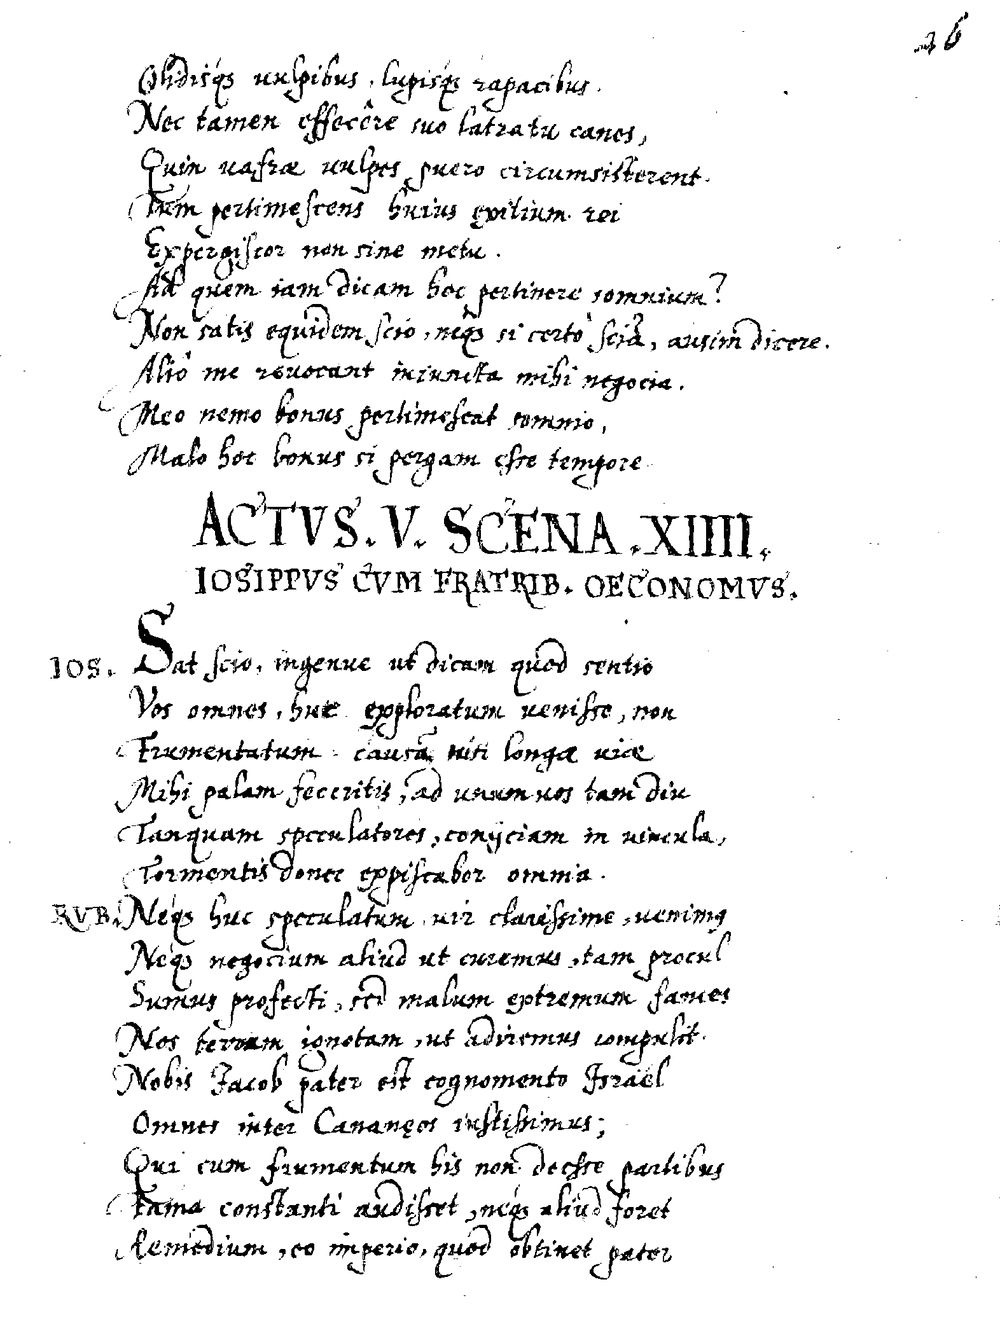 26
Obdisq́ꝫ uulpibus, lupisq́ꝫ rapacibus.
Nec tamen effecêre suo latratu canes,
Quin uafræ uulpes puero circumsisterent.
Tum pertimescens huius exitium rei
Expergiscor non sine metu.
Ad quem iam dicam hoc pertinere somnium?
Non satis equidem scio, neq́ꝫ si certò sciã, ausim dicere.
Aliò me reuocant iniuncta mihi negocia.
Meo nemo bonus pertimescat somnio,
Malo hoc bonus si pergam esse tempore
ACTVS. V. SCENA. XIIII.
IOSIPPVS CVM FRATRIB. OECONOMVS.
IOS. Sat scio, ingenue ut dicam quod sentio
Vos omnes, huc exploratum uenisse, non
Frumentatum causã, niti longæ uiæ
Mihi palam feceritis, ad unum uos tam diu
Tanquam speculatores, conijciam in uincula,
Tormentis donec expiscabor omnia.
RVB. Neq́ꝫ huc speculatum uir clarissime, uenimꝰ
Neq́ꝫ negocium aliud ut curemus, tam procul
Sumus profecti, sed malum extremum fames
Nos terram ignotam, ut adiremus compulit.
Nobis Jacob pater est cognomento Israël
Omnes inter Cananęos iustissimus;
Qui cum frumentum his non deesse partibus
Fama constanti audisset, neq́ꝫ aliud foret
Remedium, eo imperio, quod obtinet pater